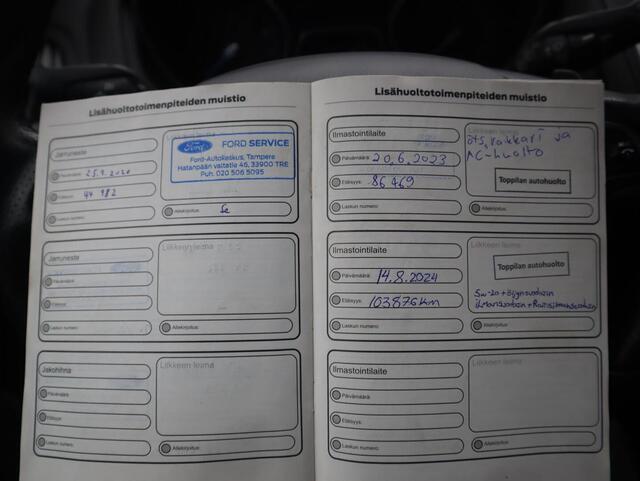 Lisähuoltotoimenpiteiden muistio
Jarruneste
Päivämäärä:
25.9.2020
Etäisyys:
44 982
Laskun numero:
Liikkeen leima
Ford
FORD SERVICE
Ford-Autokeskus, Tampere
Hatanpään valtatie 46, 33900 TRE
Puh. 020 506 5095
Allekirjoitus:
Jarruneste
Päivämäärä:
Etäisyys:
Laskun numero:
Liikkeen leima
Allekirjoitus:
Jakohihna
Päivämäärä:
Etäisyys:
Laskun numero:
Liikkeen leima
Allekirjoitus:
Lisähuoltotoimenpiteiden muistio
Ilmastointilaite
Päivämäärä:
20.6.2023
Etäisyys:
86 469
Laskun numero:
Liikkeen leima
ja
AC-huolto
Toppilan autohuolto
Allekirjoitus:
Ilmastointilaite
Päivämäärä:
14.8.2024
Etäisyys:
103876km
Laskun numero:
Liikkeen leima
Toppilan autohuolto
Allekirjoitus:
Ilmastointilaite
Päivämäärä:
Etäisyys:
Laskun numero:
Liikkeen leima
Allekirjoitus: